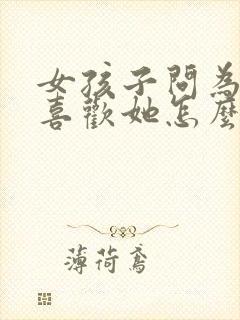 女孩子問為
喜歡她怎麼
薄荷鳶